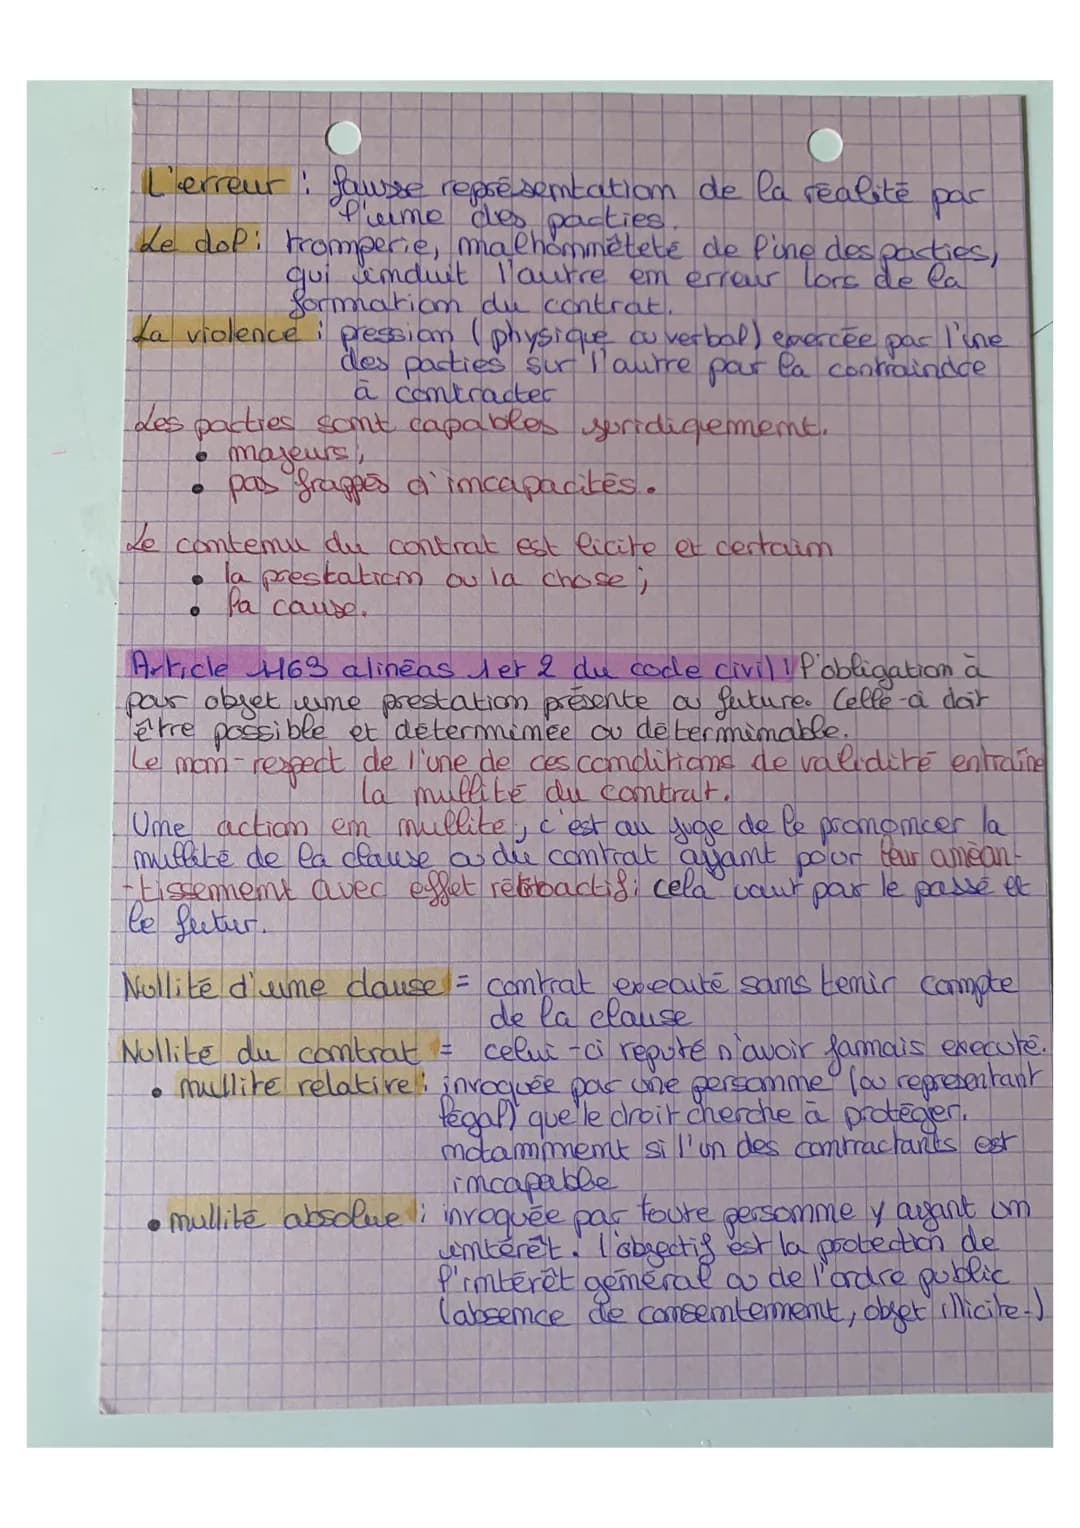 L'erreur : fausse représentation de la réalité par
l'une des parties.
Le dol : tromperie, malhonnêteté de l'une des parties,
qui induit l'autre en erreur lors de la
formation du contrat.
La violence : pression (physique ou verbal) exercée par l'une
des parties sur l'autre pour la contraindre
à contracter
Les parties sont capables juridiquement.
• majeurs ;
• pas frappés d'incapacités.
Le contenu du contrat est licite et certain
• la prestation ou la chose ;
• la cause.
Article 1163 alinéas 1 et 2 du code civil : l'obligation à
pour objet une prestation présente ou future. Celle-ci doit
être possible et déterminée ou déterminable.
Le non-respect de l'une de ces conditions de validité entraîne
la nullité du contrat.
Une action en nullité, c'est au juge de le prononcer la
nullité de la clause ou du contrat ayant pour leur anéan-
-tissement avec effet rétroactif : cela vaut par le passé et
le futur.
Nullité d'une clause = contrat executé sans tenir compte
de la clause
Nullité du contrat = celui-ci reputé n'avoir jamais executé.
• nullité relative : invoquée par une personne (ou representant
légal) que le droit cherche à protéger.
notamment si l'un des contractants est
incapable
• nullité absolue : invoquée par toute personne y ayant un
intérêt. l'objectif est la protection de
l'intérêt général ou de l'ordre public
(absence de consentement, objet illicite-)